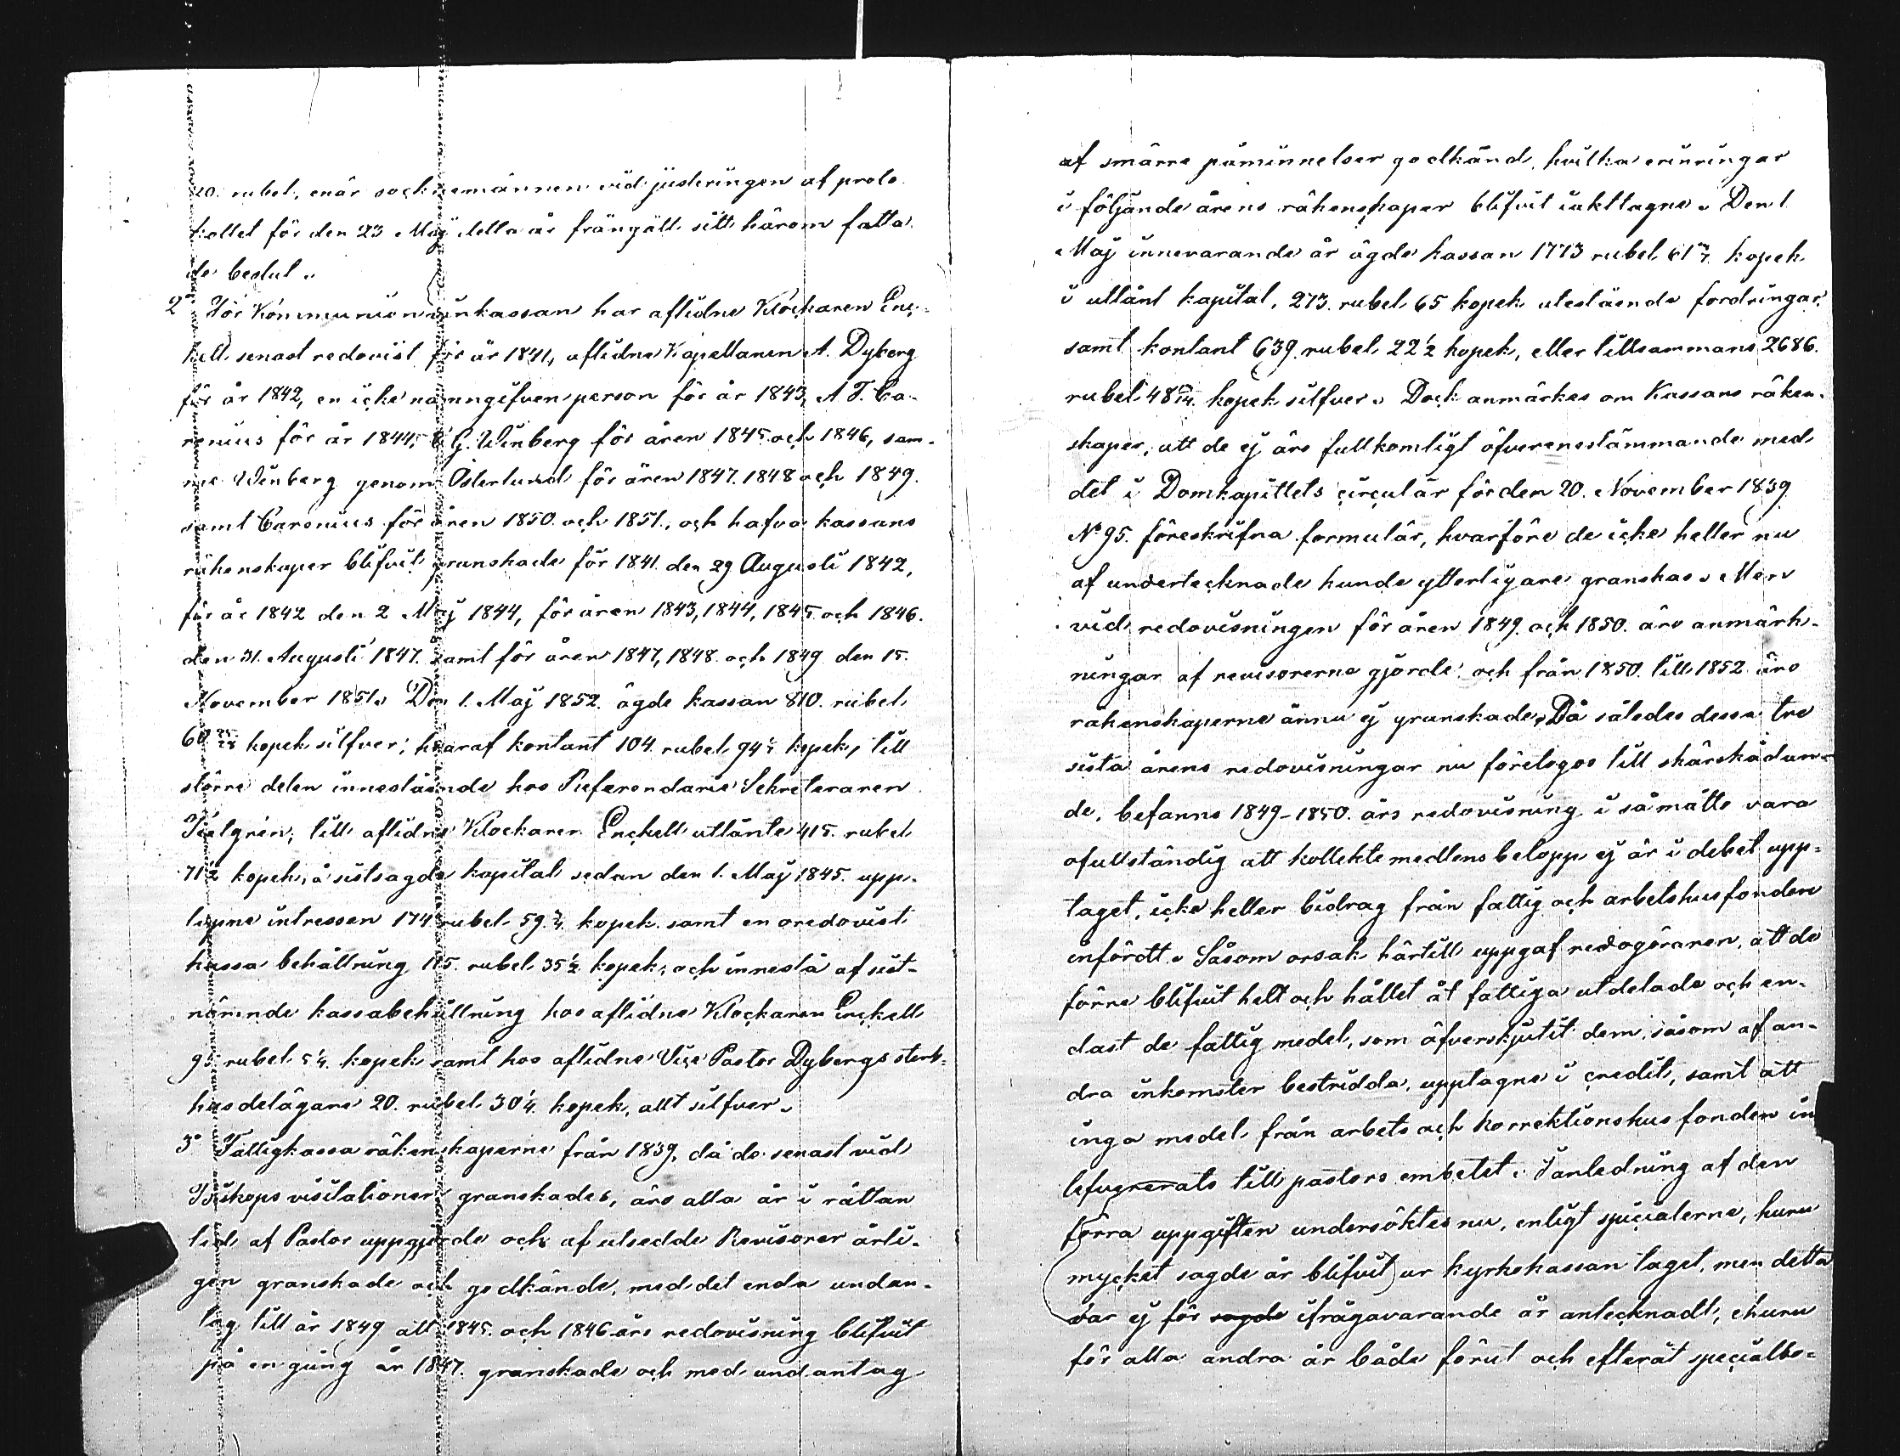 20. rubel, enär socknemännen vid justeringen af proto
kollet för den 23 Maj detta år frångått sitt härom fatta
de beslut.
2° För Kommunionvinkassan har aflidne Klockaren Enc-
kell senast redovist för år 1841, aflidne Kapellanen A. Dyberg
för år 1842, en icke namngifven person för år 1843, A. F. Ca-
renius för år 1844, G. Winberg för åren 1845 och 1846, sam-
me Winberg genom Österlund för åren 1847. 1848 och 1849.
samt Carenius för åren 1850. och 1851., och hafva kassans
räkenskaper blifvit granskade för 1841. den 29 Augusti 1842,
för år 1842 den 2 Maj 1844, för åren 1843, 1844, 1845 och 1846.
den 31. Augusti 1847. samt för åren 1847, 1848. och 1849 den 15.
November 1851. Den 1. Maj 1852. ägde kassan 810. rubel
60 kopek silfver; hvaraf kontant 104. rubel 94 kopek, till
större delen innestående hos Referendarie Sekreteraren
till aflidne Klockaren Enckell utlånte 415. rubel
71½ kopek, å sistsagde kapital sedan den 1. Maj 1845. upp-
lupne intressen 174 rubel 59. kopek. samt en oredovist
kassa behållning 115. rubel 35½ kopek; och innestå af sist-
nämnde kassabehållning hos aflidne Klockaren Enckell
95 rubel 5¼. kopek samt hos aflidne Vice Pastor Dybergs sterb-
husdelägare 20. rubel 30¼. kopek, allt silfver.
3° Fattigkassa räkenskaperne från 1839, då de senast vid
Biskops visitationen granskades, äro alla år i rättan
tid af Pastor uppgjorde och af utsedde Revisorer årli-
gen granskade och godkände, med det enda undan-
tag till år 1849 att 1845. och 1846 års redovisning blifvit
på en gång år 1847. granskade och med undantag
af smärre påminnelser godkänd, hvilka erinringar
i följande årens räkenskaper blifvit iakttagne. Den 1.
Maj innevarande år ägde kassan 1773 rubel 61 kopek
i utlånt kapital, 273. rubel 65 kopek utestående fordringar,
samt kontant 639. rubel 22½ kopek, eller tillsammans 2686.
rubel 48 kopek silfver. Dock anmärkes om Kassans räken-
skaper, att de ej äro fullkomligt öfverensstämmande med
det i Domkapitlets circulär för den 20. November 1839
N° 95. föreskrifna formulär, hvarföre de icke heller nu
af undertecknade kunde ytterligare granskas. Men
vid redovisningen för åren 1849. och 1850. äro anmärk-
ningar af revisorerne gjorde; och från 1850. till 1852. äro
räkenskaperne ännu ej granskade. Då således dessa tre
sista årens redovisningar nu företogos till skärskådan-
de, befanns 1849-1850. års redovisning i såmåtto vara
ofullständig att kollektmedlens belopp ej är i debet upp-
taget, icke heller bidrag från fattig och arbetshusfonden
infördt. Såsom orsak härtill uppgaf redogöraren, att de
förre blifvit helt och hållet åt fattiga utdelade och en-
dast de fattig medel, som öfverskjutit dem, såsom af an-
dra inkomster bestridda, upptagne i credit, samt att
inga medel från arbets och Korrektionshus fonden in
lefvererats till pastors embetet. I anledning af den
förra uppgiften undersöktes nu, enligt specialerne, huru
mycket sagde år blifvit ur kyrkokassan taget, men detta
var ej för sagde ifrågavarande år antecknadt, ehuru
för alla andra år både förut och efteråt specialbe-